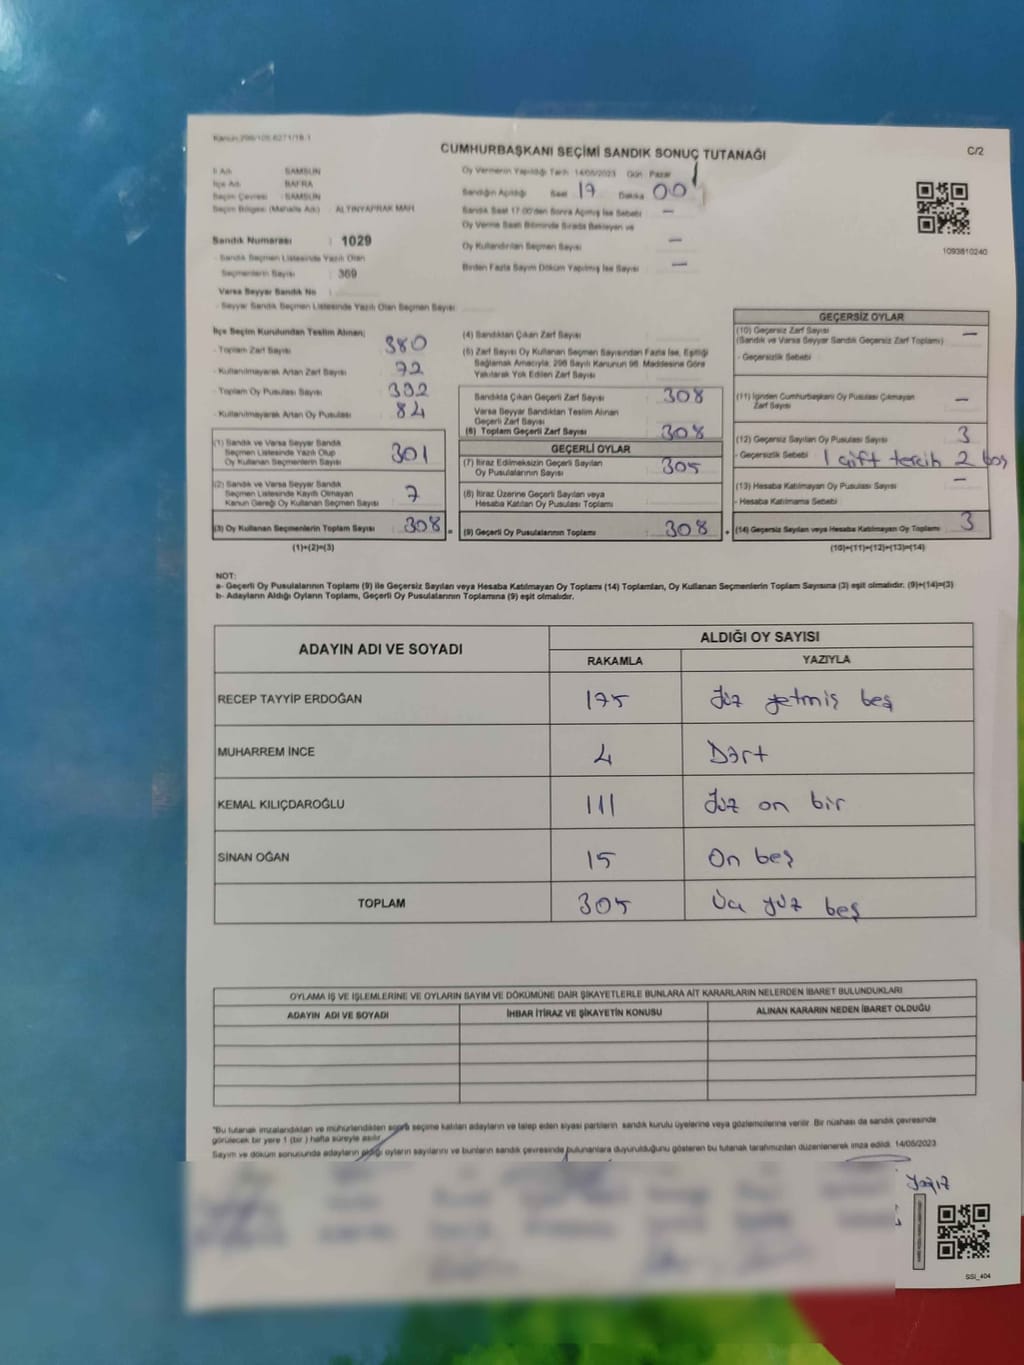 Kanun:298/105,6271/18-1
CUMHURBAŞKANI SEÇİMİ SANDIK SONUÇ TUTANAĞI
C/2
İl Adı : SAMSUN
İlçe Adı : BAFRA
Seçim Çevresi : SAMSUN
Seçim Bölgesi (Mahalle Adı) : ALTINYAPRAK MAH.
Sandık Numarası : 1029
- Sandık Seçmen Listesinde Yazılı Olan
Seçmenlerin Sayısı : 369
Varsa Seyyar Sandık No :
- Seyyar Sandık Seçmen Listesinde Yazılı Olan Seçmen Sayısı:
Oy Vermenin Yapıldığı Tarih: 14/05/2023 Gün : Pazar
Sandığın Açıldığı Saat 17 Dakika 00
Sandık Saat 17.00'den Sonra Açılmış İse Sebebi —
Oy Verme Saati Bitiminde Sırada Bekleyen ve
Oy Kullandırılan Seçmen Sayısı —
Birden Fazla Sayım Döküm Yapılmış İse Sayısı —
1093810240
İlçe Seçim Kurulundan Teslim Alınan;
- Toplam Zarf Sayısı 380
- Kullanılmayarak Artan Zarf Sayısı 72
- Toplam Oy Pusulası Sayısı 392
- Kullanılmayarak Artan Oy Pusulası 84
(1) Sandık ve Varsa Seyyar Sandık
Seçmen Listesinde Yazılı Olup
Oy Kullanan Seçmenlerin Sayısı 301
(2) Sandık ve Varsa Seyyar Sandık
Seçmen Listesinde Kayıtlı Olmayan
Kanun Gereği Oy Kullanan Seçmen Sayısı 7
(3) Oy Kullanan Seçmenlerin Toplam Sayısı 308
(1)+(2)=(3)
(4) Sandıktan Çıkan Zarf Sayısı
(5) Zarf Sayısı Oy Kullanan Seçmen Sayısından Fazla İse, Eşitliği
Sağlamak Amacıyla; 298 Sayılı Kanunun 98. Maddesine Göre
Yakılarak Yok Edilen Zarf Sayısı
Sandıkta Çıkan Geçerli Zarf Sayısı 308
Varsa Seyyar Sandıktan Teslim Alınan
Geçerli Zarf Sayısı
(6) Toplam Geçerli Zarf Sayısı 308
GEÇERLİ OYLAR
(7) İtiraz Edilmeksizin Geçerli Sayılan
Oy Pusulalarının Sayısı 305
(8) İtiraz Üzerine Geçerli Sayılan veya
Hesaba Katılan Oy Pusulası Toplamı
(9) Geçerli Oy Pusulalarının Toplamı 308
GEÇERSİZ OYLAR
(10) Geçersiz Zarf Sayısı —
(Sandık ve Varsa Seyyar Sandık Geçersiz Zarf Toplamı)
- Geçersizlik Sebebi
(11) İçinden Cumhurbaşkanı Oy Pusulası Çıkmayan
Zarf Sayısı —
(12) Geçersiz Sayılan Oy Pusulası Sayısı 3
- Geçersizlik Sebebi 1 çift tercih 2 boş
(13) Hesaba Katılmayan Oy Pusulası Sayısı —
- Hesaba Katılmama Sebebi
(14) Geçersiz Sayılan veya Hesaba Katılmayan Oy Toplamı 3
(10)+(11)+(12)+(13)=(14)
NOT:
a- Geçerli Oy Pusulalarının Toplamı (9) ile Geçersiz Sayılan veya Hesaba Katılmayan Oy Toplamı (14) Toplamları, Oy Kullanan Seçmenlerin Toplam Sayısına (3) eşit olmalıdır. (9)+(14)=(3)
b- Adayların Aldığı Oyların Toplamı, Geçerli Oy Pusulalarının Toplamına (9) eşit olmalıdır.
ADAYIN ADI VE SOYADI
ALDIĞI OY SAYISI
RAKAMLA YAZIYLA
RECEP TAYYİP ERDOĞAN 175 Yüz yetmiş beş
MUHARREM İNCE 4 Dört
KEMAL KILIÇDAROĞLU 111 Yüz on bir
SİNAN OĞAN 15 On beş
TOPLAM 305 Üç yüz beş
OYLAMA İŞ VE İŞLEMLERİNE VE OYLARIN SAYIM VE DÖKÜMÜNE DAİR ŞİKAYETLERLE BUNLARA AİT KARARLARIN NELERDEN İBARET BULUNDUKLARI
ADAYIN ADI VE SOYADI İHBAR İTİRAZ VE ŞİKAYETİN KONUSU ALINAN KARARIN NEDEN İBARET OLDUĞU
"Bu tutanak imzalandıktan ve mühürlendikten sonra seçime katılan adayların ve talep eden siyasi partilerin sandık kurulu üyelerine veya gözlemcilerine verilir. Bir nüshası da sandık çevresinde
görülecek bir yere 1 (bir ) hafta süreyle asılır.
Sayım ve döküm sonucunda adayların aldığı oyların sayılarını ve bunların sandık çevresinde bulunanlara duyurulduğunu gösteren bu tutanak tarafımızdan düzenlenerek imza edildi. 14/05/2023
SSİ_404